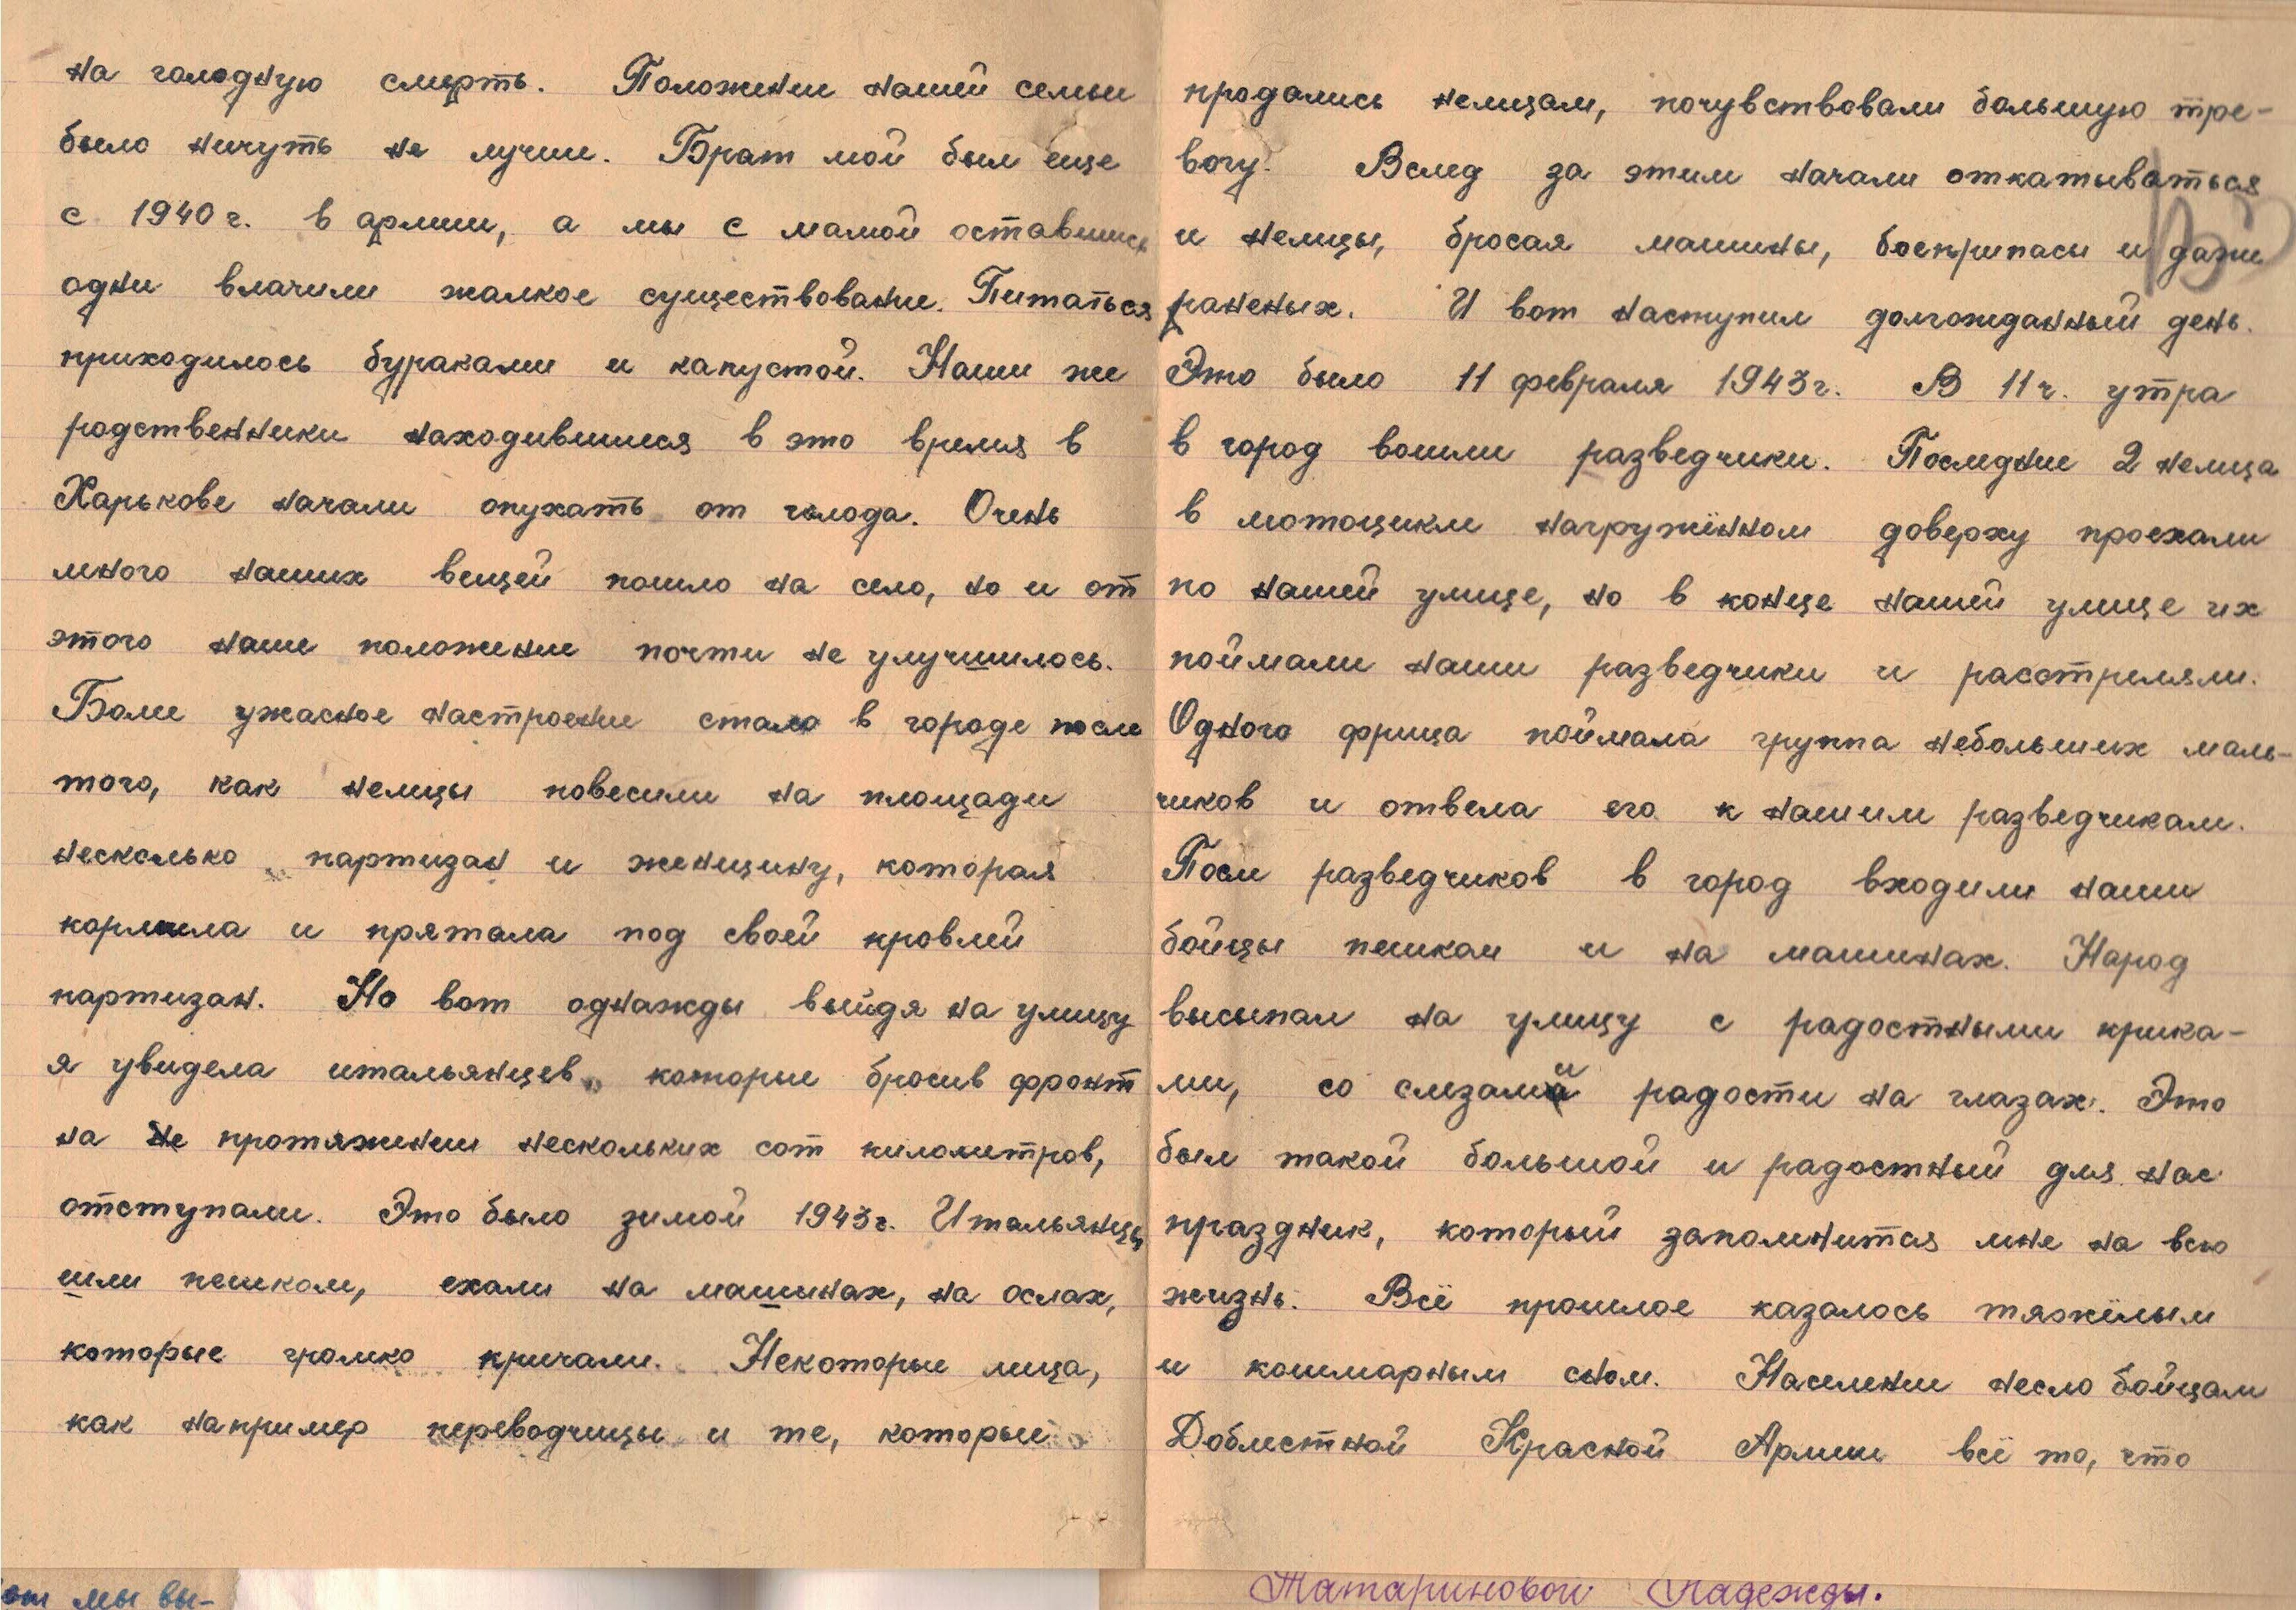 на голодную смерть. Положение нашей семьи
было ничуть не лучше. Брат мой был еще
с 1940 г. в армии, а мы с мамой оставшись
одни влачили жалкое существование. Питаться
приходилось бураками и капустой. Наши же
родственники находившиеся в это время в
Харькове начали опухать от голода. Очень
много наших вещей пошло на село, но и от
этого наше положение почти не улучшилось.
Более ужасное настроение стало в городе после
того, как немцы повесили на площади
несколько партизан и женщину, которая
кормила и прятала под своей кровлей
партизан. Но вот однажды выйдя на улицу
я увидела итальянцев, которые бросив фронт
на не протяжении нескольких сот километров,
отступали. Это было зимой 1943г. Итальянцы
шли пешком, ехали на машинах, на ослах,
которые громко кричали. Некоторые лица,
как например переводчицы и те, которые
продались немцам, почувствовали большую тре-
вогу. Вслед за этим начали откатываться
и немцы, бросая машины, боеприпасы и даже
раненых. И вот наступил долгожданный день.
Это было 11 февраля 1943г. В 11 ч. утра
в город вошли разведчики. Последние 2 немца
в мотоцикле нагружённом доверху проехали
по нашей улице, но в конце нашей улице их
поймали наши разведчики и расстреляли.
Одного фрица поймала группа небольших маль-
чиков и отвела его к нашим разведчикам.
После разведчиков в город входили наши
бойцы пешком и на машинах. Народ
высыпал на улицу с радостными крика-
ми, со слезами радости на глазах. Это
был такой большой и радостный для нас
праздник, который запомнится мне на всю
жизнь. Всё прошлое казалось тяжёлым
и кошмарным сном. Население несло бойцам
Доблестной Красной Армии всё то, что
мы вы-
Татариновой Надежды.